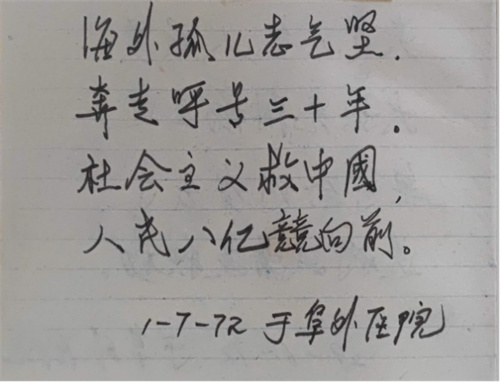 海外孤儿志气坚.
奔走呼号三十年.
社会主义救中國,
人民八亿競向前。
1-7-72 于阜外医院